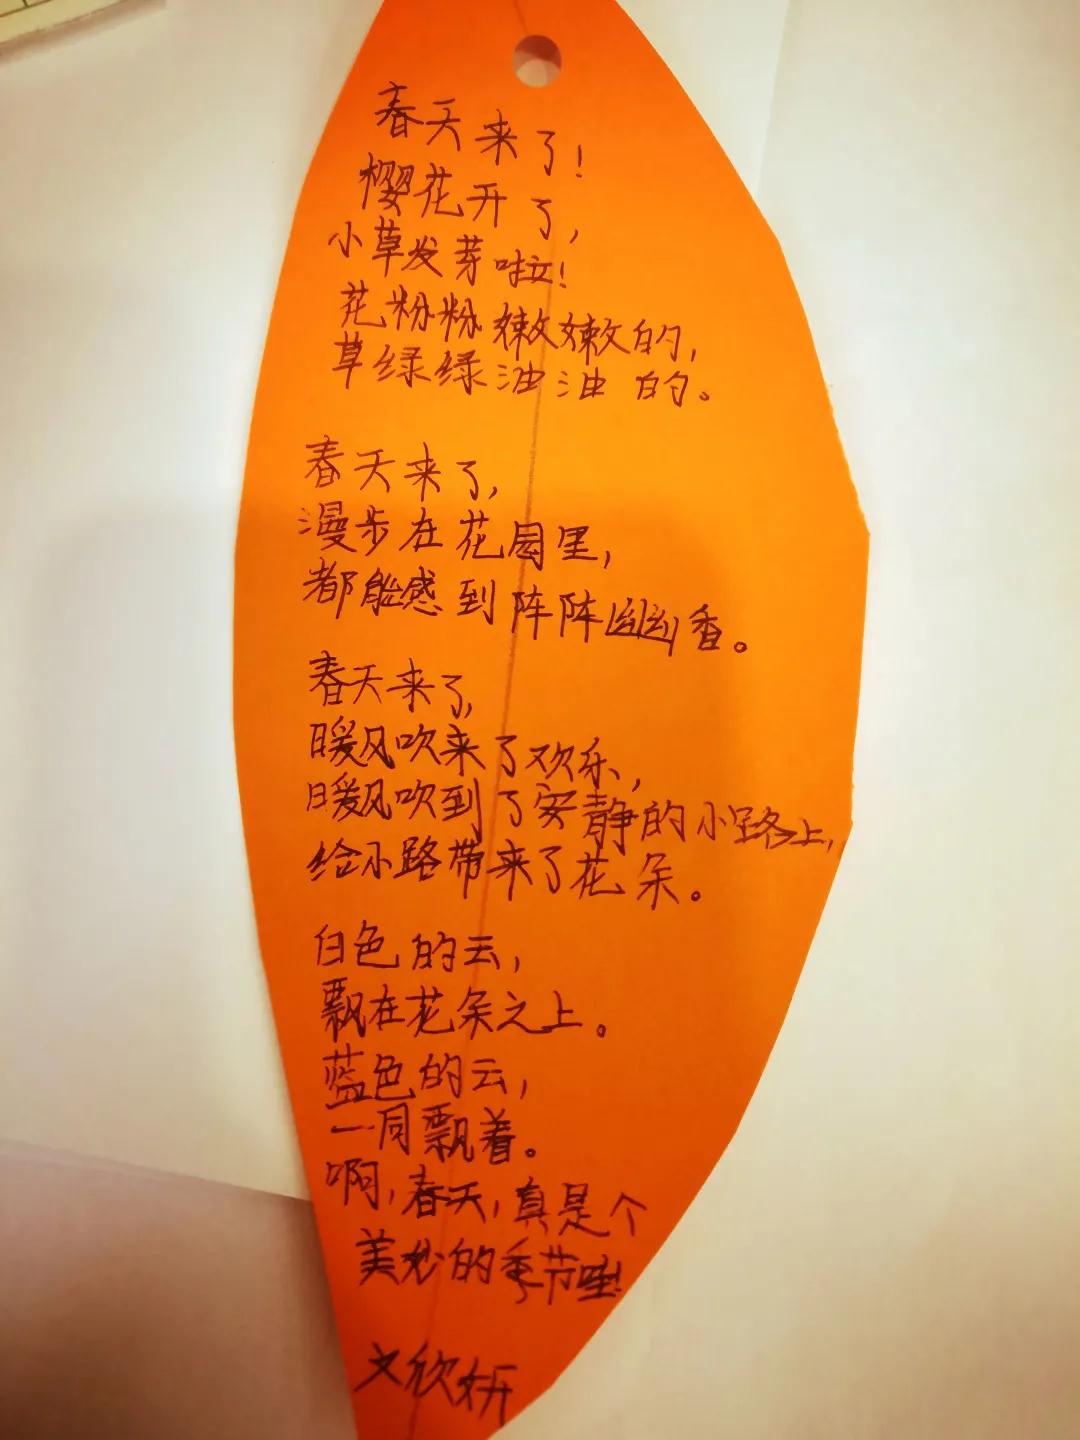 春天来了！
樱花开了，
小草发芽啦！
花粉粉嫩嫩的，
草绿绿油油的。
春天来了，
漫步在花园里，
都能感到阵阵幽香。
春天来了，
暖风吹来了欢乐，
暖风吹到了安静的小路上，
给小路带来了花朵。
白色的云，
飘在花朵之上。
蓝色的云，
一同飘着。
啊，春天，真是个
美妙的季节哇！
文欣妍